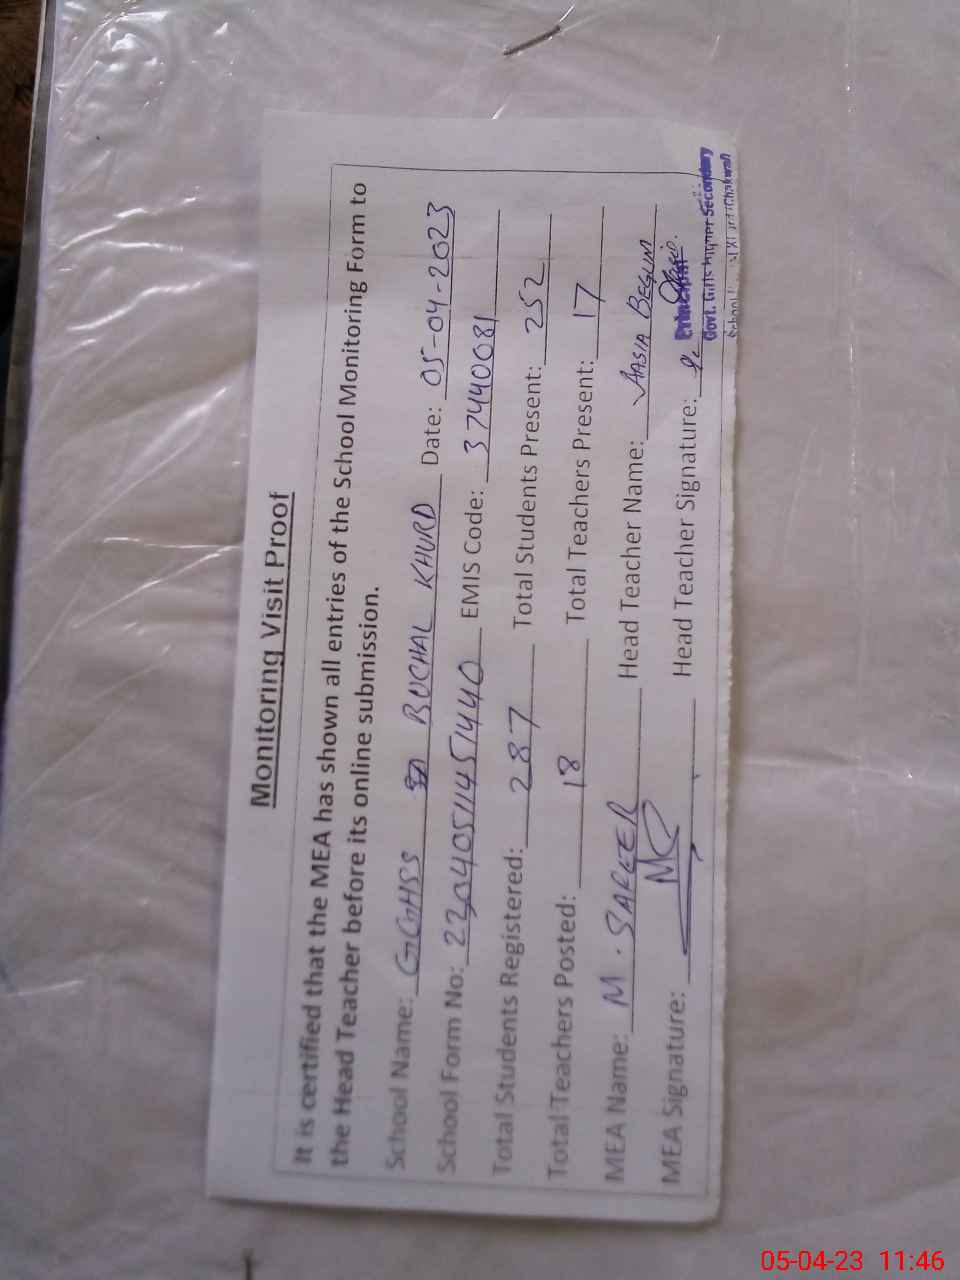 Monitoring Visit Proof
It is certified that the MEA has shown all entries of the School Monitoring Form to
the Head Teacher before its online submission.
School Name: GGHSS BUCHAL KHURD Date: 05-04-2023
School Form No: EMIS Code: 37440081
Total Students Registered: 287 Total Students Present: 252
Total Teachers Posted: 18 Total Teachers Present: 17
MEA Name: M. SAFEER Head Teacher Name: AASIA BEGUM
MEA Signature: Head Teacher Signature:
Principal
Govt. Girls Higher Secondary
School Chakwal
05-04-23 11:46